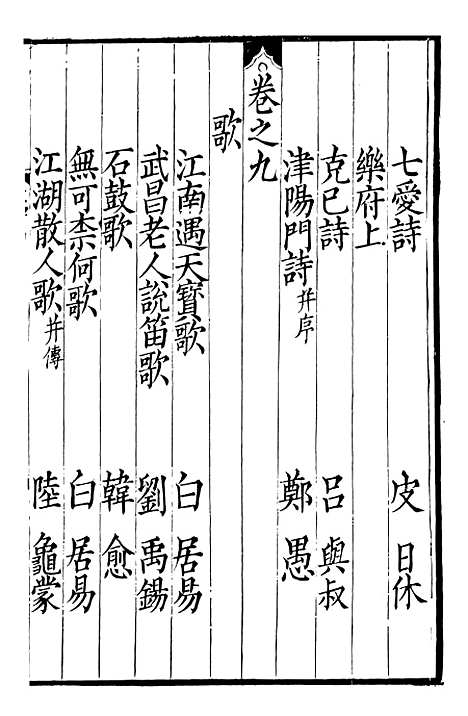 七愛詩 皮日休
樂府上
克己詩 呂與叔
津陽門詩并序 鄭愚
卷之九
歌
江南遇天寶歌 白居易
武昌老人說笛歌 劉禹錫
石鼓歌 韓愈
無可柰何歌 白居易
江湖散人歌并傳 陸龜蒙